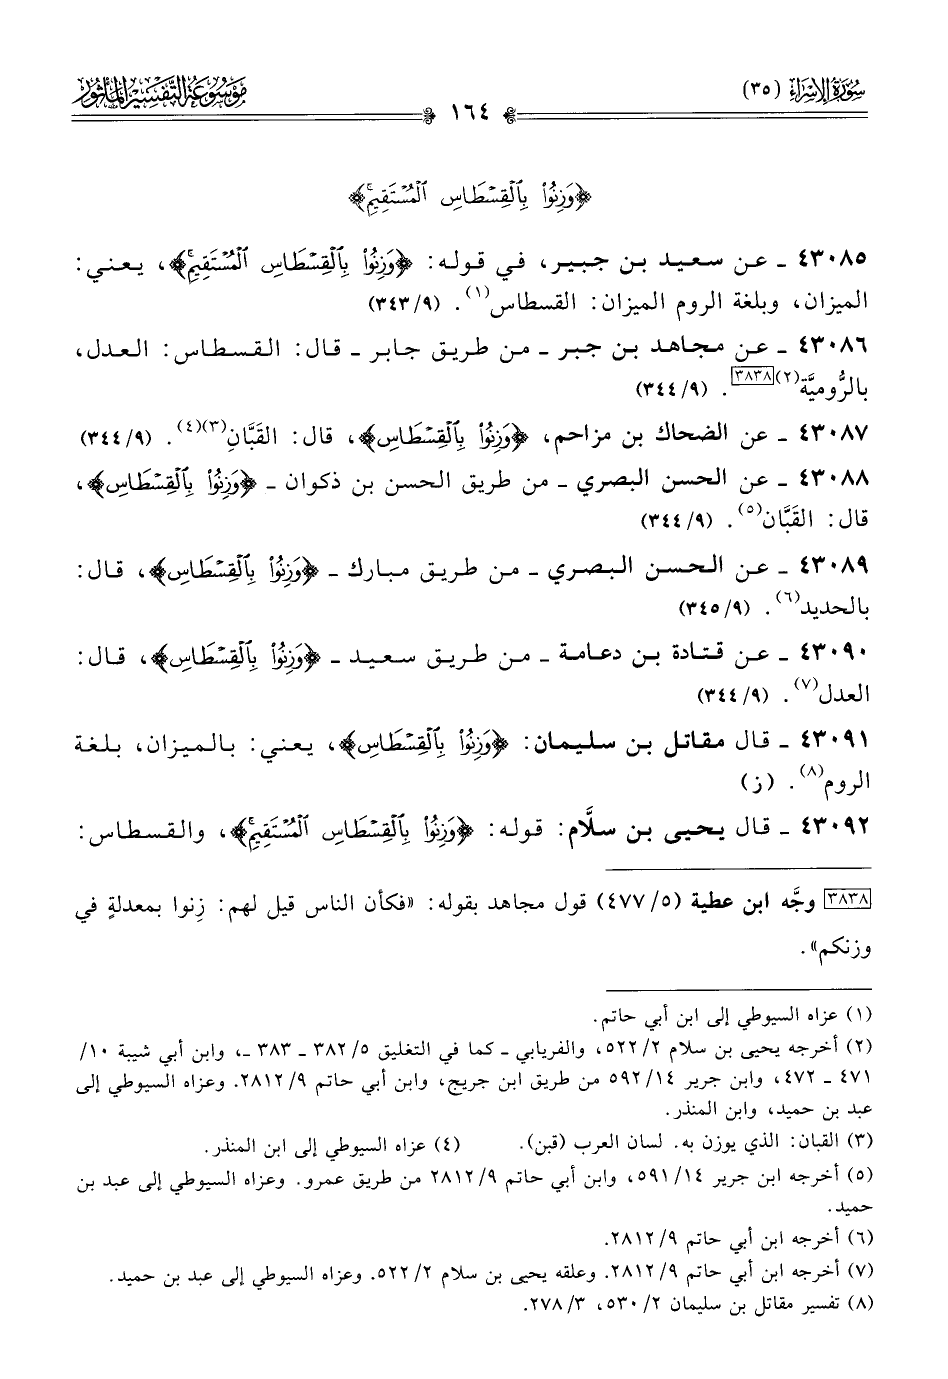 سورة الإسراء (٣٥)
١٦٤
موسوعة التفسير المأثور
﴿وَزِنُوا۟ بِٱلْقِسْطَاسِ ٱلْمُسْتَقِيمِۚ﴾
٤٣٠٨٥ ـ عن سعيد بن جبير، في قوله: ﴿وَزِنُوا۟ بِٱلْقِسْطَاسِ ٱلْمُسْتَقِيمِۚ﴾، يعني:
الميزان، وبلغة الروم الميزان: القسطاس(١). (٩/٣٤٣)
٤٣٠٨٦ ـ عن مجاهد بن جبر ـ من طريق جابر ـ قال: القسطاس: العدل،
بالرُّوميَّة(٢)[٣٨٣٨]. (٩/٣٤٤)
٤٣٠٨٧ ـ عن الضحاك بن مزاحم، ﴿وَزِنُوا۟ بِٱلْقِسْطَاسِ﴾، قال: القَبَّانِ(٣)(٤). (٩/٣٤٤)
٤٣٠٨٨ ـ عن الحسن البصري ـ من طريق الحسن بن ذكوان ـ ﴿وَزِنُوا۟ بِٱلْقِسْطَاسِ﴾،
قال: القَبَّان(٥). (٩/٣٤٤)
٤٣٠٨٩ ـ عن الحسن البصري ـ من طريق مبارك ـ ﴿وَزِنُوا۟ بِٱلْقِسْطَاسِ﴾، قال:
بالحديد(٦). (٩/٣٤٥)
٤٣٠٩٠ ـ عن قتادة بن دعامة ـ من طريق سعيد ـ ﴿وَزِنُوا۟ بِٱلْقِسْطَاسِ﴾، قال:
العدل(٧). (٩/٣٤٤)
٤٣٠٩١ ـ قال مقاتل بن سليمان: ﴿وَزِنُوا۟ بِٱلْقِسْطَاسِ﴾، يعني: بالميزان، بلغة
الروم(٨). (ز)
٤٣٠٩٢ ـ قال يحيى بن سلَّام: قوله: ﴿وَزِنُوا۟ بِٱلْقِسْطَاسِ ٱلْمُسْتَقِيمِۚ﴾، والقسطاس:
[٣٨٣٨] وجَّه ابن عطية (٥/٤٧٧) قول مجاهد بقوله: «فكأن الناس قيل لهم: زِنوا بمعدلةٍ في
وزنكم».
(١) عزاه السيوطي إلى ابن أبي حاتم.
(٢) أخرجه يحيى بن سلام ٢/٥٢٢، والفريابي ـ كما في التغليق ٥/٣٨٢ ـ ٣٨٣ ـ، وابن أبي شيبة ١٠/
٤٧١ ـ ٤٧٢، وابن جرير ١٤/٥٩٢ من طريق ابن جريج، وابن أبي حاتم ٩/٢٨١٢. وعزاه السيوطي إلى
عبد بن حميد، وابن المنذر.
(٣) القبان: الذي يوزن به. لسان العرب (قبن). (٤) عزاه السيوطي إلى ابن المنذر.
(٥) أخرجه ابن جرير ١٤/٥٩١، وابن أبي حاتم ٩/٢٨١٢ من طريق عمرو. وعزاه السيوطي إلى عبد بن
حميد.
(٦) أخرجه ابن أبي حاتم ٩/٢٨١٢.
(٧) أخرجه ابن أبي حاتم ٩/٢٨١٢. وعلقه يحيى بن سلام ٢/٥٢٢. وعزاه السيوطي إلى عبد بن حميد.
(٨) تفسير مقاتل بن سليمان ٢/٥٣٠، ٣/٢٧٨.